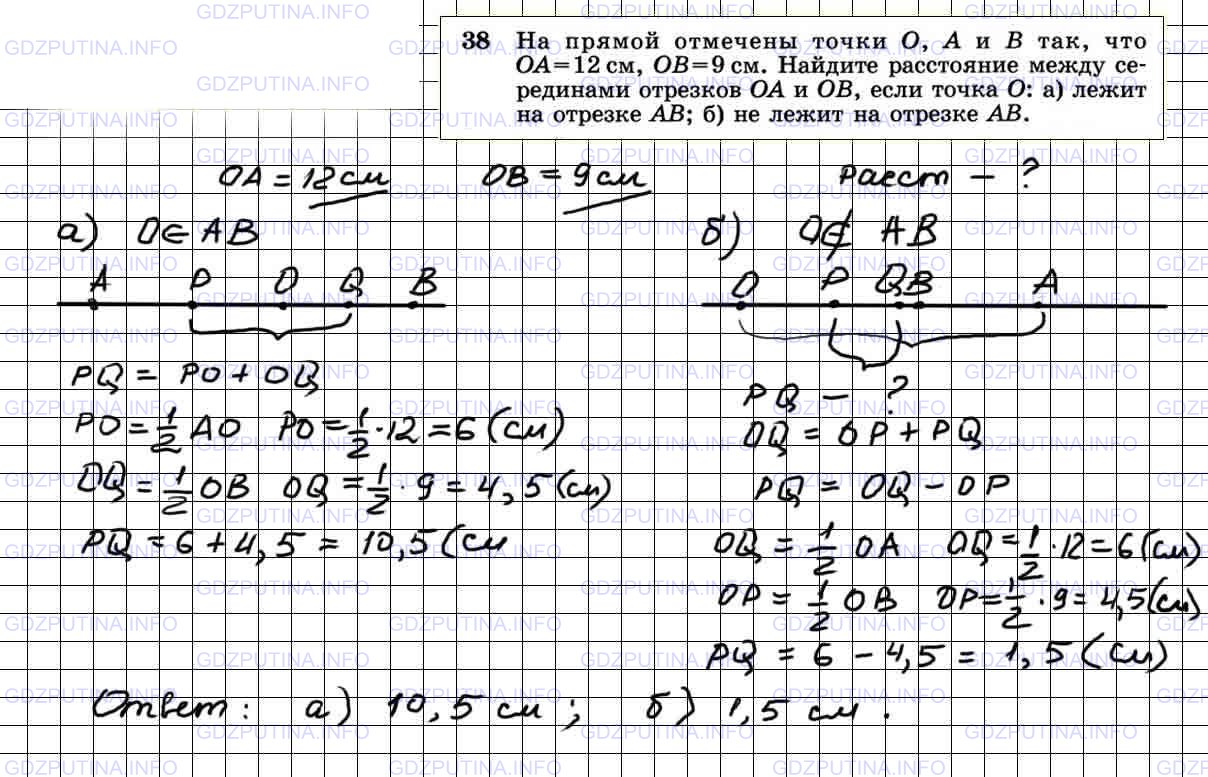 38 На прямой отмечены точки O, A и B так, что
OA=12 см, OB=9 см. Найдите расстояние между се-
рединами отрезков OA и OB, если точка O: а) лежит
на отрезке AB; б) не лежит на отрезке AB.
OA = 12 см OB = 9 см Расст - ?
а) O∈ AB
A P O Q B
PQ = PO + OQ
PO = 1/2 AO PO = 1/2 · 12 = 6 (см)
OQ = 1/2 OB OQ = 1/2 · 9 = 4,5 (см)
PQ = 6 + 4,5 = 10,5 (см
б) O∉ AB
O P Q B A
PQ - ?
OQ = OP + PQ
PQ = OQ - OP
OQ = 1/2 OA OQ = 1/2 · 12 = 6 (см)
OP = 1/2 OB OP = 1/2 · 9 = 4,5 (см)
PQ = 6 - 4,5 = 1,5 (см)
Ответ: а) 10,5 см; б) 1,5 см.
GDZPUTINA.INFO